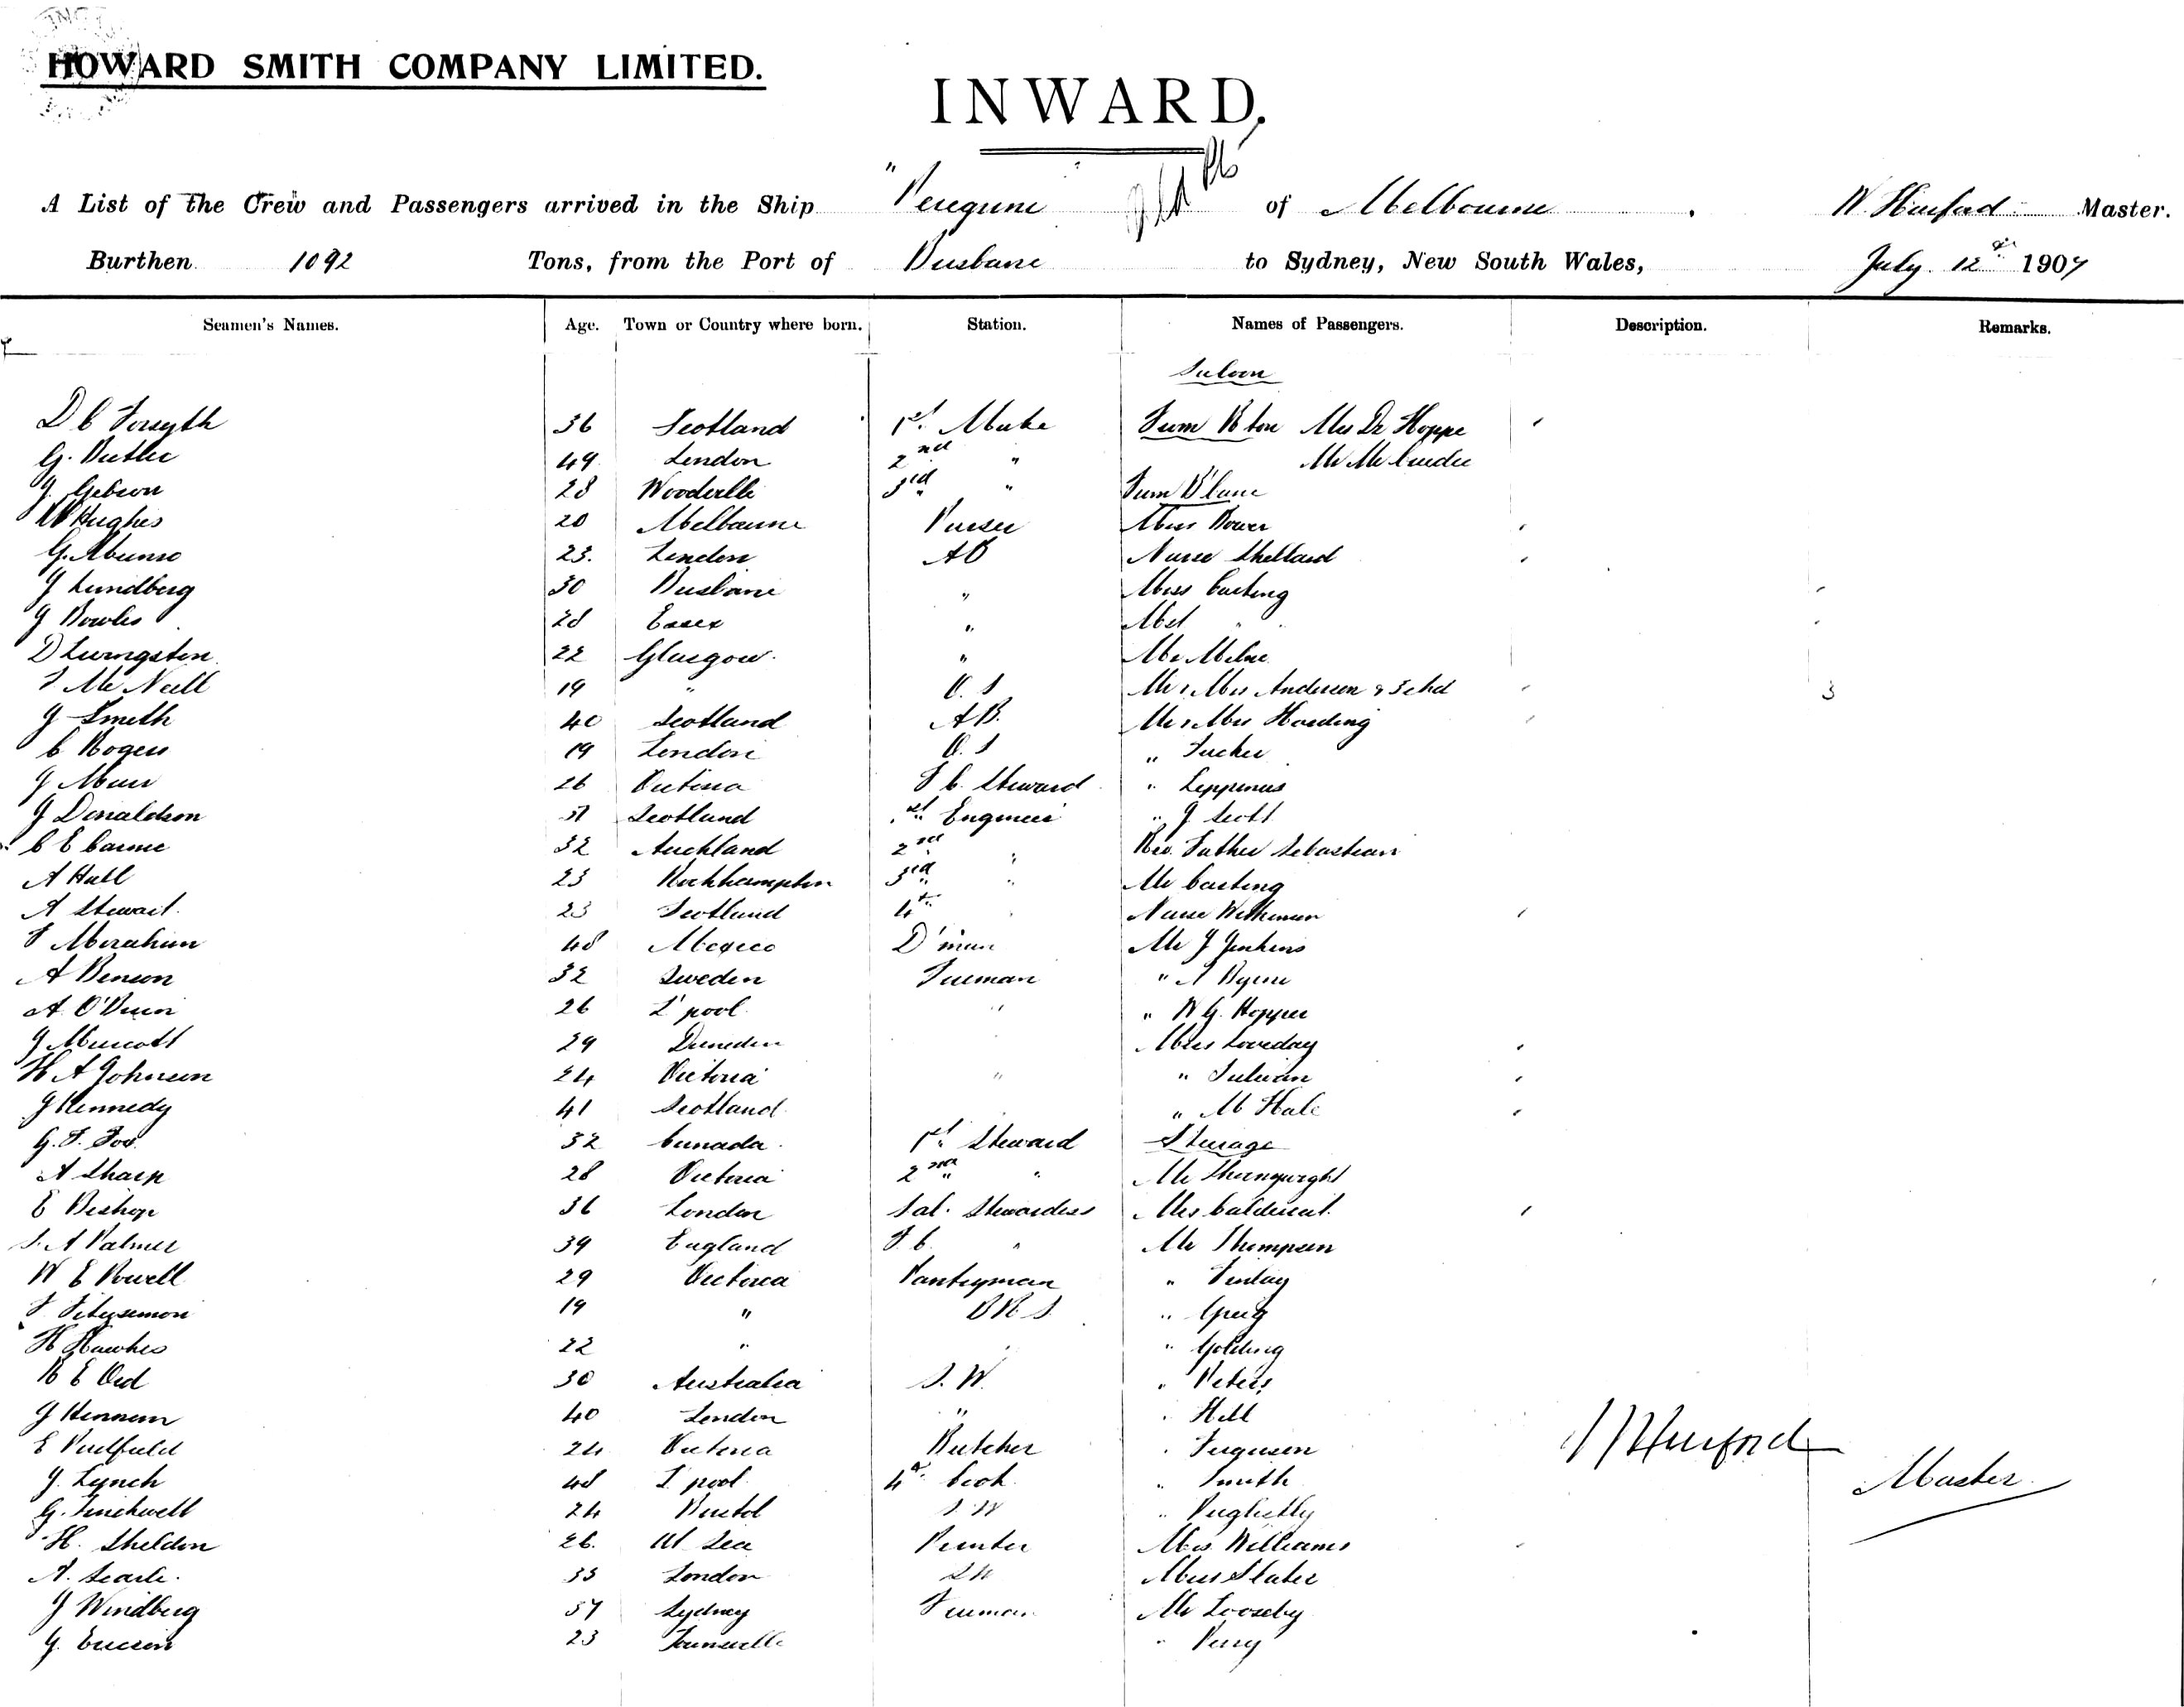 HOWARD SMITH COMPANY LIMITED.
INWARD.
A List of the Crew and Passengers arrived in the Ship "Peregrine" of Melbourne. W. Hurford Master.
Burthen 1092 Tons, from the Port of Brisbane to Sydney, New South Wales, July 12th 1907
Seamen's Names. Age. Town or Country where born. Station. Names of Passengers. Description. Remarks.
Saloon
D C Forsyth 36 Scotland 1st Mate From R'ton Mrs Dr Hoppe
G. Butler 49 London 2nd " Mr
J. Gibson 28 Woodville 3rd " From B'bane
Hughes 20 Melbourne Purser Miss Bower
G. Munro 23. London AB Nurse Shellard
J Lundberg 30 Brisbane " Miss Carting
J Bowles 28 Essex " Mrs "
D Livingston 22 Glasgow. " Milne
McNeill 19 " O. S Mr & Mrs Anderson & 3 chd 3
J Smith 40 Scotland AB. Mr & Mrs Harding
C Rogers 19 London O. S " Tucker
J Muir 26 Victoria F C. Steward "
J Donaldson 51 Scotland 1st Engineer " J Scott
C E Carne 32 Auckland 2nd " Rev. Father Sebastian
A Hall 23 Rockhampton 3rd " Mr Carting
A Stewart. 23 Scotland 4th " Nurse
48 Mexico D'man Mr J Jenkins
A Benson 32 Sweden Fireman " Byrne
A. O'Brien 26 L'pool " " W G. Hopper
J Murcott 29 Dunedin Miss Loveday
H A Johnson 24 Victoria " " Sullivan
J Kennedy 41 Scotland " M Hale
G. F. Fox 32 Canada. 1st Steward Steerage
A Sharp 28 Victoria 2nd " Mr
E Bishop 36 London Sal. Stewardess Mrs
S. A Palmer 39 England F. C. " Mr Thompson
W E Powell 29 Victoria Pantryman " Finlay
F. Fitzsimon 19 " B R S. " Greig
H Hawkes 22 " " " Golding
R E Ord 30 Australia S. W. " Peters
J Hennem 40 London " " Hill
E 24 Victoria Butcher " Ferguson
J. Lynch 48 L'pool 4th Cook. " Smith
G. Tuckwell 24 Bristol S W "
H. Sheldon 26. At Sea Printer Mrs Williams
A. Searle. 33 London S W Miss Slater
J Windberg 37 Sydney Fireman Mr Looseby
G. Ericson 23 Townsville " Perry
W Hurford
Master